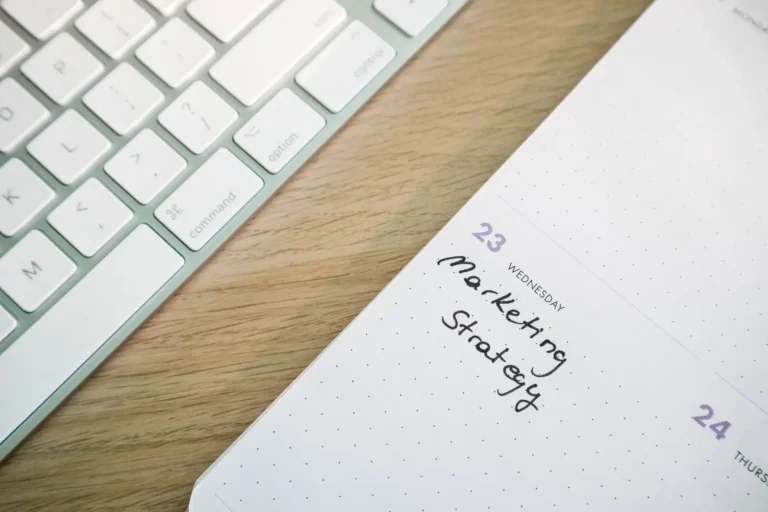 P
control
O
L
? /
option
K
> .
⌘ command
M
< ,
23 WEDNESDAY
Marketing
Strategy
24